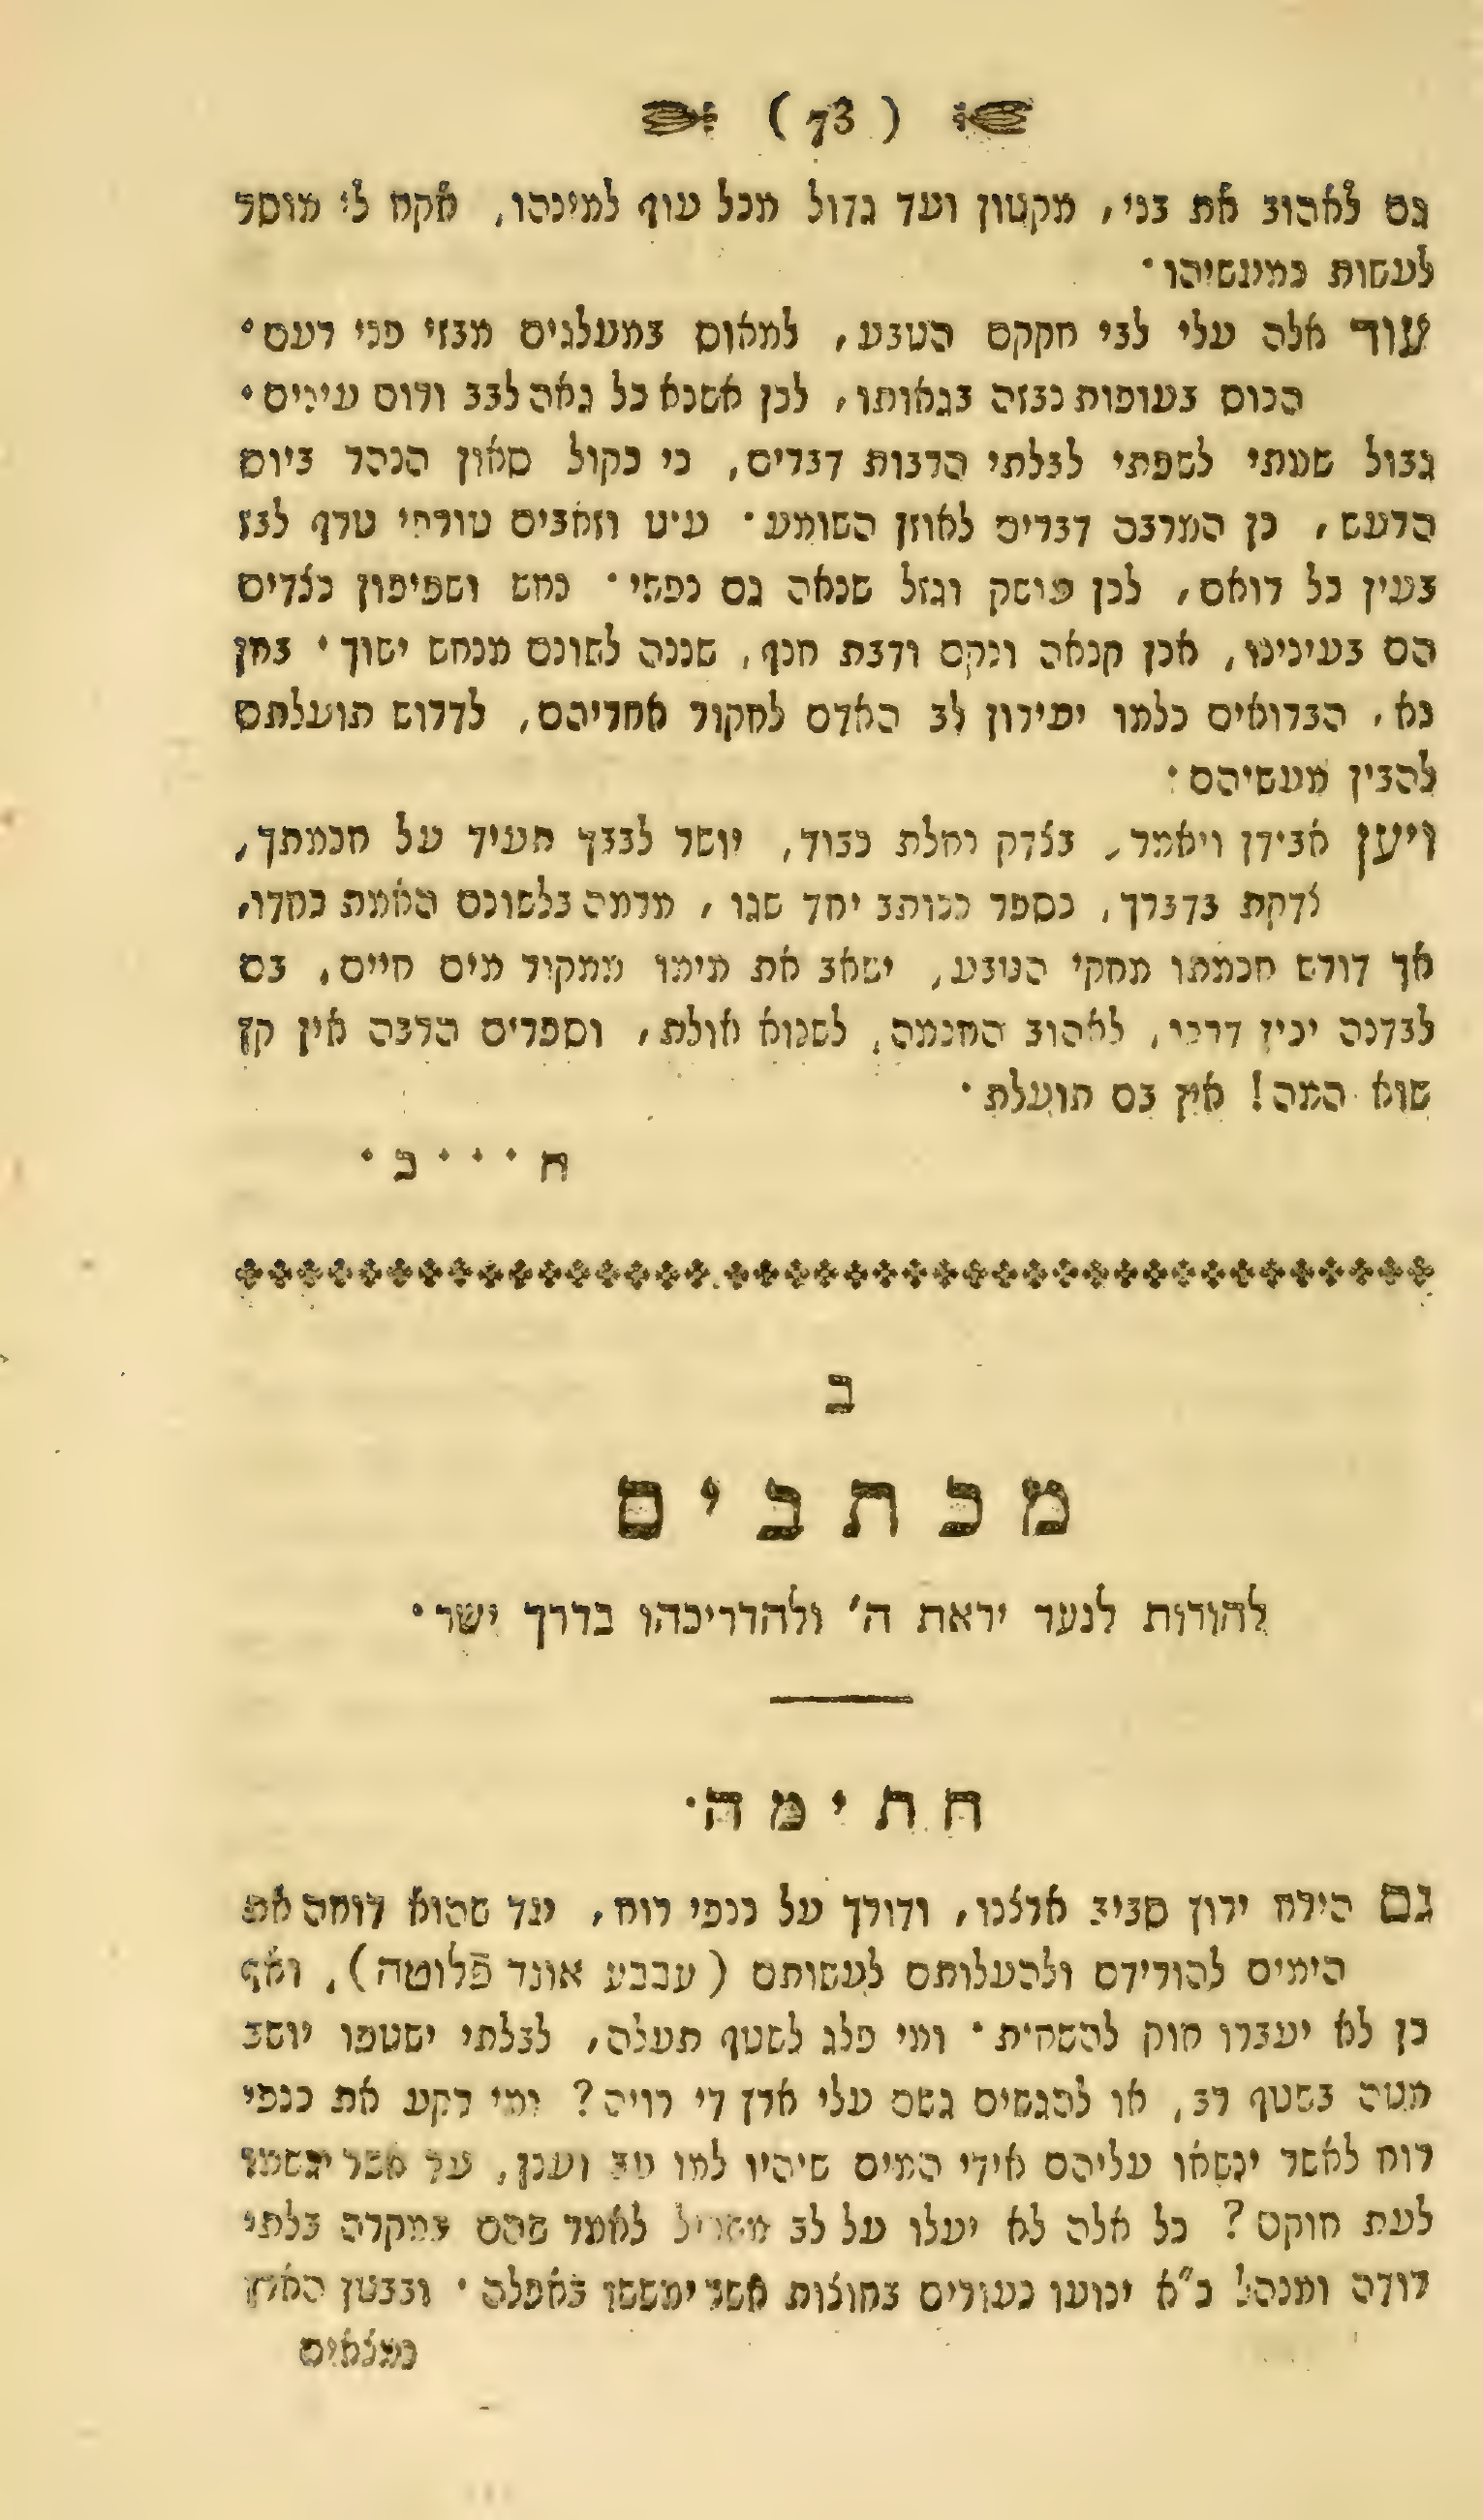 ( 73 )
גם לאהוב את בני, מקטון ועד גדול מכל עוף למינהו, אקח לי מוסר
לעשות כמעשיהו·
עוד אלה עלי לבי חקקם הטבע, למאוס במעלגים מבזי פני רעם·
הכוס בעופות נבזה בגאותו, לכן אשנא כל גאה לבב ורום עינים·
גבול שעתי לשפתי לבלתי הרבות דברים, כי כקול סאון הנהר ביום
הרעש, כן המרבה דברים לאוזן השומע· עיט וזאבים טורפי טרף לבז
בעין כל רואם, לכן עושק וגזל שנאה גם נפשי· נחש ושפיפון נצדים
הם בעינינו, אכן קנאה ונקם ודבת חנף, שננה לשונם מנחש ישוך· בחן
נא, הברואים כלמו יעירון לב האדם לחקור אחריהם, לדרוש תועלתם
להבין מעשיהם·
ויען אבידן ויאמר, בצדק נחלת כבוד, יושר לבבך תעיד על חכמתך,
צדקת בדברך, בספר ככותב יחד שגו, מרמה בלשונם האמת נחדו,
אך דורש חכמתו מחקי הטבע, ישאב את מימו ממקור מים חיים, בם
לבדנה יכין דרכו, לאהוב החכמה, לשנוא אולת, וספרים הרבה אין קץ
שוא המה! אין בם תועלת·
ח · · · כ ·
ב
מכתבים
להורות לנער יראת ה' ולהדריכהו בדרך ישר·
חתימה·
גם הירח ירוץ סביב ארצנו, ודורך על כנפי רוח, יגד שהוא דוחה את
הימים להורידם ולהעלותם לעשותם (עבבע אונד פלוטה), ואף
כן לא יעברו חוק להשחית· ומי פלג לשטף תעלה, לבלתי ישטפו יושב
מטה בשטף רב, או להגשים גשם עלי ארץ די רויה? ומי רקע את כנפי
רוח לאשר ינשאו עליהם אידי המים שיהיו למו עב וענן, עד אשר יגשמו
לעת חוקם? כל אלה לא יעלו על לב משכיל לאמר שהם במקרה בלתי
רודה ומנהל! כ"א ינועו כעורים בחוצות אשר ימששו באפלה· ובבטן הארץ
נמצאים